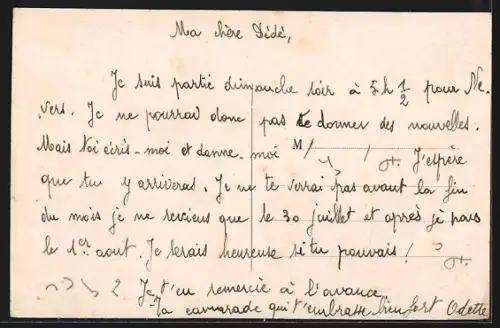 Ma chère Dédé,
Je suis partie dimanche soir à 5 h 1/2 pour Ne-
vers. Je ne pourrai donc pas te donner des nouvelles.
Mais toi écris-moi et donne-moi M
J'espère
que tu y arriveras. Je ne te verrai pas avant la fin
du mois je ne reviens que le 30 juillet et après je pars
le 1er aout. Je serais heureuse si tu pouvais !
Je t'en remercie à l'avance
Ta camarade qui t'embrasse bien fort Odette